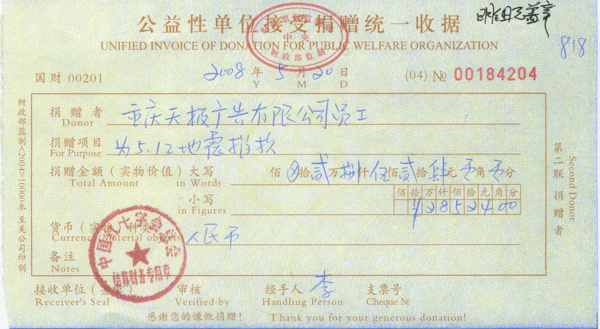 公益性单位接受捐赠统一收据
UNIFIED INVOICE OF DONATION FOR PUBLIC WELFARE ORGANIZATION
中央
财政部监制
818
国财 00201
2008 年 5 月 20 日
Y M D
(04) № 00184204
捐赠者 重庆天极广告有限公司员工
Donor
捐赠项目 为5.12地震捐款
For Purpose
捐赠金额(实物价值)大写 佰 拾贰万捌仟伍佰贰拾肆元 角 分
Total Amount in Words
小写 佰拾万仟佰拾元角分
in Figures ¥12852400
货币(实物)种类 人民币
Currency(Material objects)
备注
Notes
中国红十字会总会
接收单位(签章) 审核 经手人 李 支票号
Receiver's Seal Verified by Handling Person Cheque №
感谢您的慷慨捐赠! Thank you for your generous donation!
财政部监制
第二联 捐赠者
Second Donor